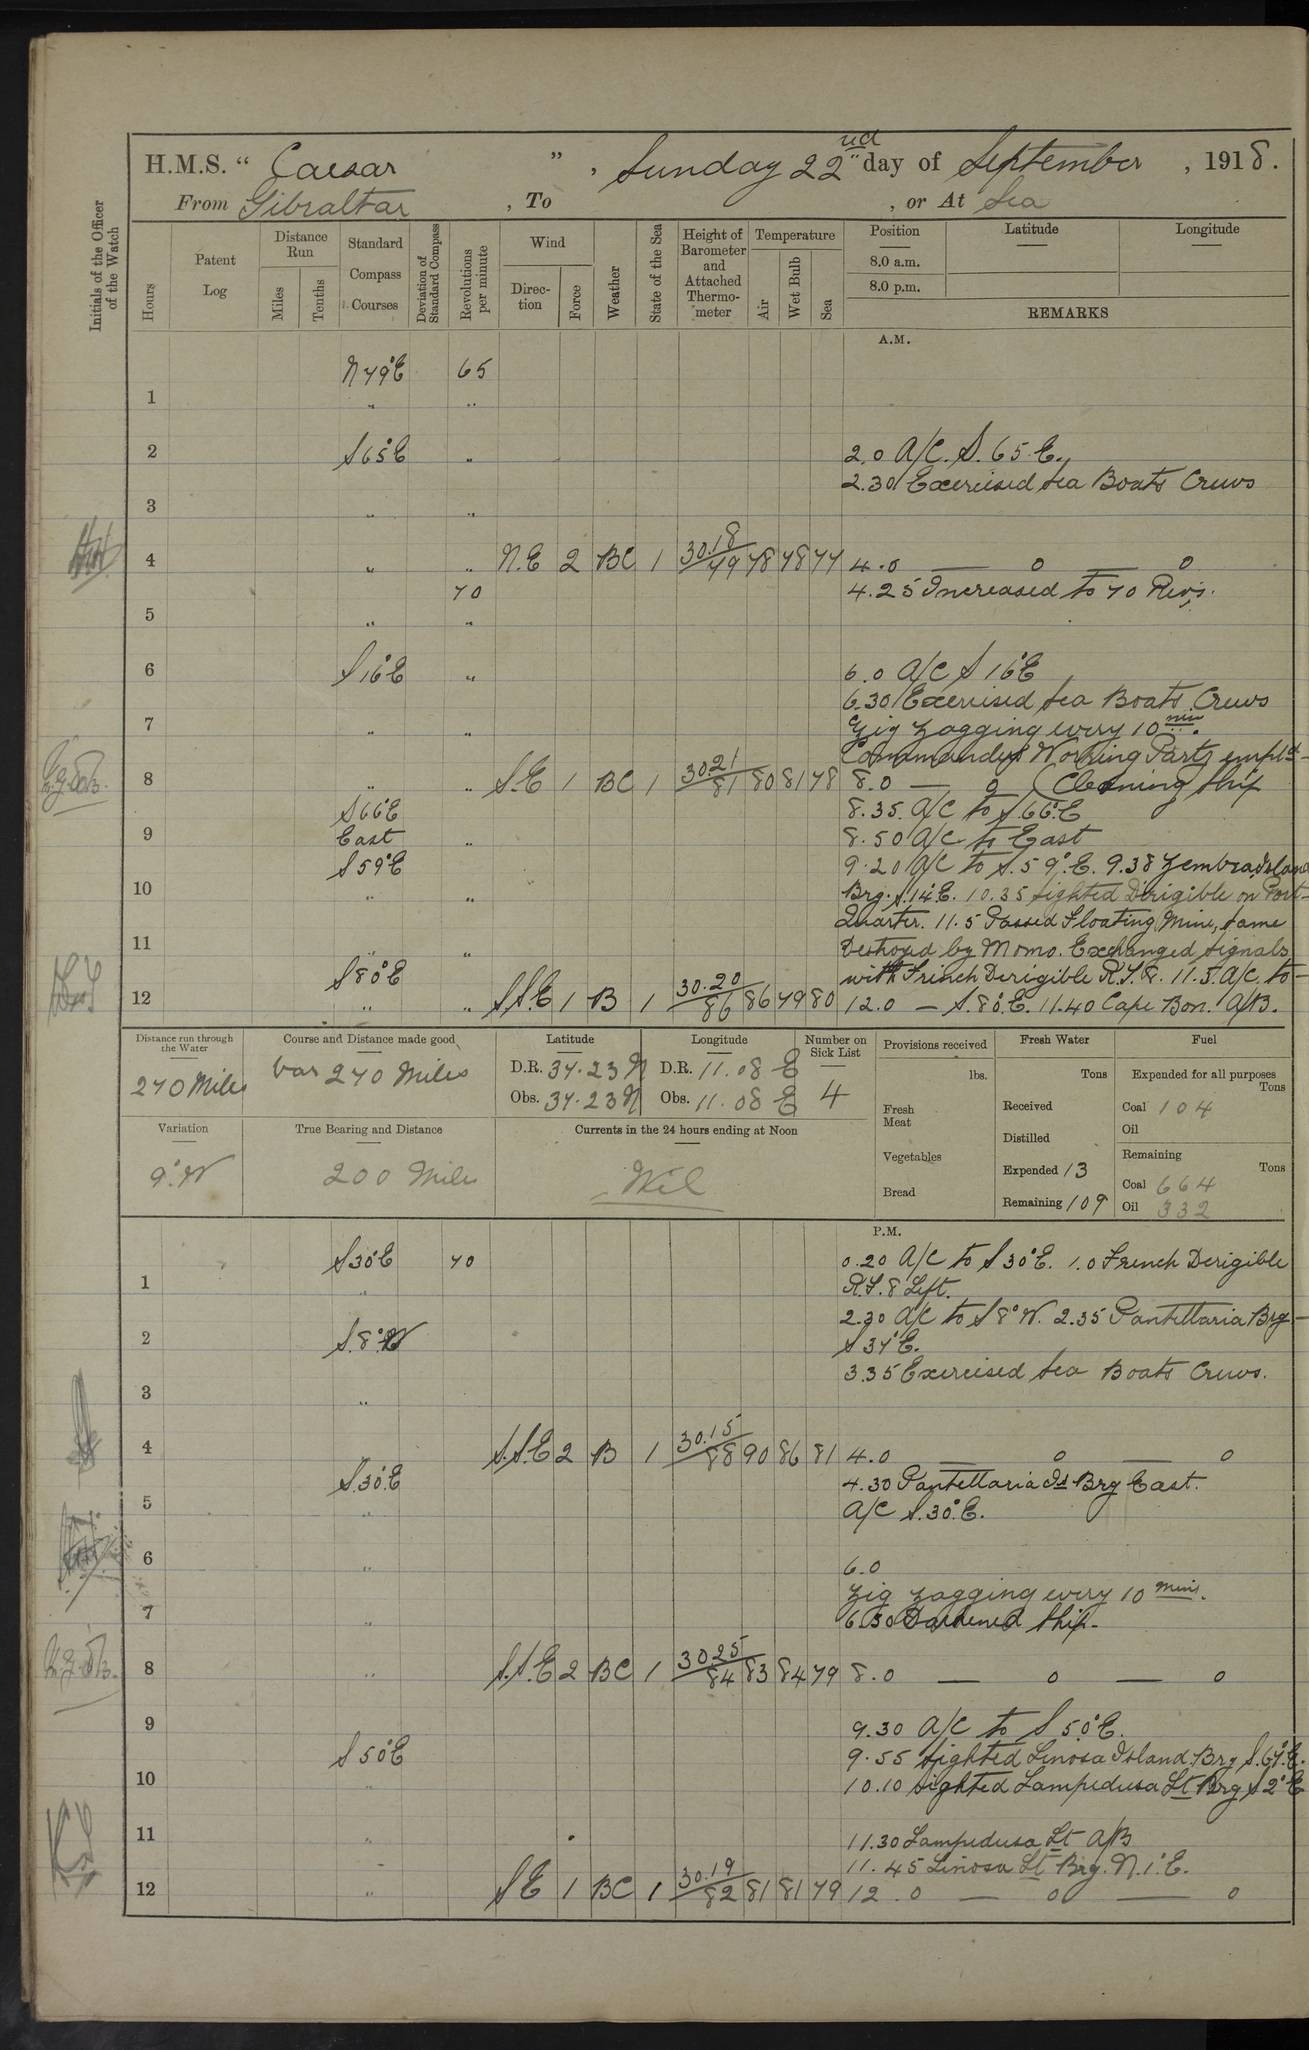 H.M.S. “ Caesar ” , Sunday 22nd day of September , 1918.
From Gibraltar , To , or At Sea
Initials of the Officer of the Watch
Hours
Patent Log
Distance Run
Miles Tenths
Standard Compass Courses
Deviation of Standard Compass
Revolutions per minute
Wind
Direction Force
Weather
State of the Sea
Height of Barometer and Attached Thermometer
Temperature
Air Wet Bulb Sea
Position Latitude Longitude
8.0 a.m.
8.0 p.m.
REMARKS
A.M.
N79°E 65
1 " "
2 S65°E " 2.0 A/C. S. 65 E.
2.30 Exercised Sea Boats Crews
3 " "
4 " " N.E 2 BC 1 30.18/79 78 78 77 4.0 — 0 — 0
70 4.25 Increased to 70 Revs.
5 " "
6 S16°E " 6.0 A/C S 16°E
6.30 Exercised Sea Boats Crews
7 " " Zig Zagging every 10 min.
Commanders Working Party empld
8 " " S.E 1 BC 1 30.21/81 80 81 78 8.0 — 0 (Cleaning Ship
S66°E 8.35. A/C to S.66°.E
9 East " 8.50 A/C to East
S59°E 9.20 A/C to S.59°.E. 9.38 Zembra Island
10 " " Brg. S.14°E. 10.35 sighted Dirigible on Port
Quarter. 11.5 Passed Floating Mine, same
11 " " Destroyed by Momo. Exchanged signals
S80°E with French Derigible R.S.8. 11.5. A/C to
12 " " S.S.E 1 B 1 30.20/86 86 79 80 12.0 — S.80°.E. 11.40 Cape Bon. A/B.
Distance run through the Water
270 Miles
Course and Distance made good
Var 270 Miles
Latitude
D.R. 37.23 N
Obs. 37.23 N
Longitude
D.R. 11.08 E
Obs. 11.08 E
Number on Sick List
4
Variation
9°.W
True Bearing and Distance
200 Miles
Currents in the 24 hours ending at Noon
Nil
Provisions received
lbs.
Fresh Meat
Vegetables
Bread
Fresh Water
Tons
Received
Distilled
Expended 13
Remaining 109
Fuel
Expended for all purposes
Tons
Coal 104
Oil
Remaining
Tons
Coal 664
Oil 332
P.M.
S30°E 70 0.20 A/C to S 30°E. 1.0 French Derigible
1 " R.S.8 Left.
2.30 A/C to S 8° W. 2.35 Pantellaria Brg
2 S.8°.W S 37°E.
3 3.35 Exercised Sea Boats Crews.
"
4 S.S.E 2 B 1 30.15/88 90 86 81 4.0 — 0 — 0
S.30°.E 4.30 Pantellaria Is Brg East.
5 " A/C S.30°.E.
6 " 6.0
Zig Zagging every 10 mins.
7 " 6.30 Darkened Ship.
8 " S.S.E 2 BC 1 30.25/84 83 84 79 8.0 — 0 — 0
9 9.30 A/C to S 50°E.
S 50°E 9.55 sighted Linosa Island. Brg S.67°.E.
10 " 10.10 sighted Lampedusa Lt Brg S 2° E
11 " 11.30 Lampedusa Lt A/B
" 11.45 Linosa Lt Brg. N.1°E.
12 " SE 1 BC 1 30.19/82 81 81 79 12.0 — 0 — 0